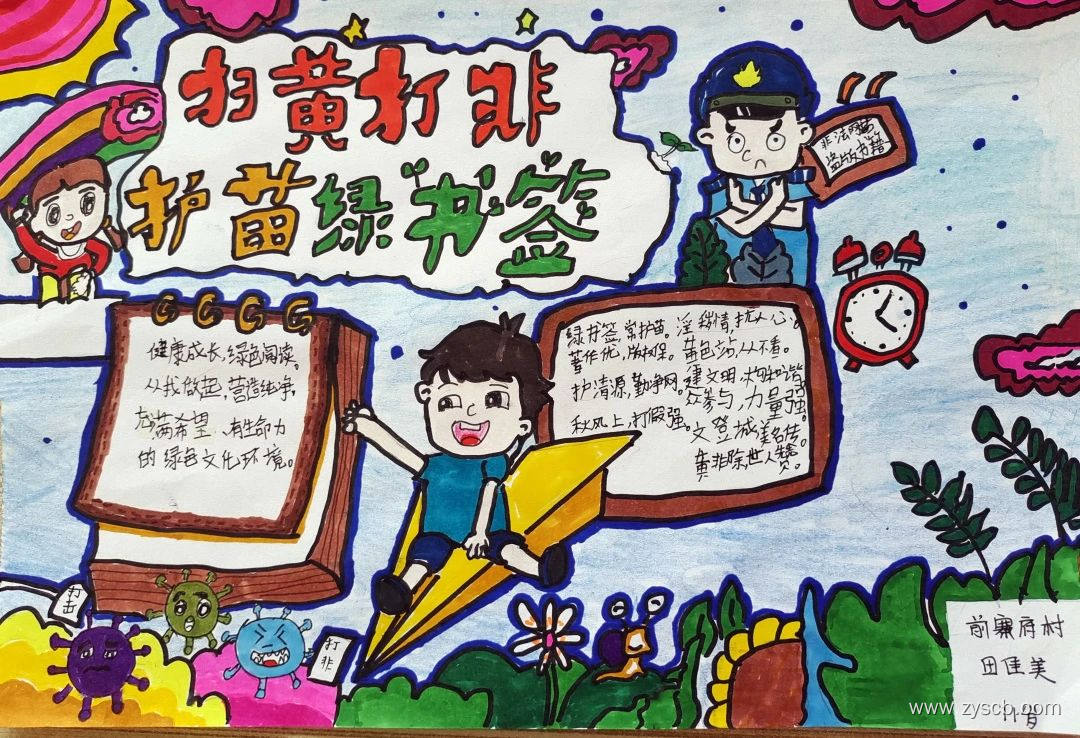 扫黄打非
护苗绿书签
非法网站
盗版书籍
健康成长,绿色阅读。
从我做起,营造纯净,
充满希望、有生命力
的绿色文化环境。
绿书签,常护苗。淫秽情,扰人心。
著作优,版权保。黄色站,从不看。
护清源,勤净网。建文明,构和谐
众参与,力量强。
秋风上,打假强。文登城美名传。
黄非除世人赞。
打击
打非
前 府村
田佳美
11岁
www.zyscb.com